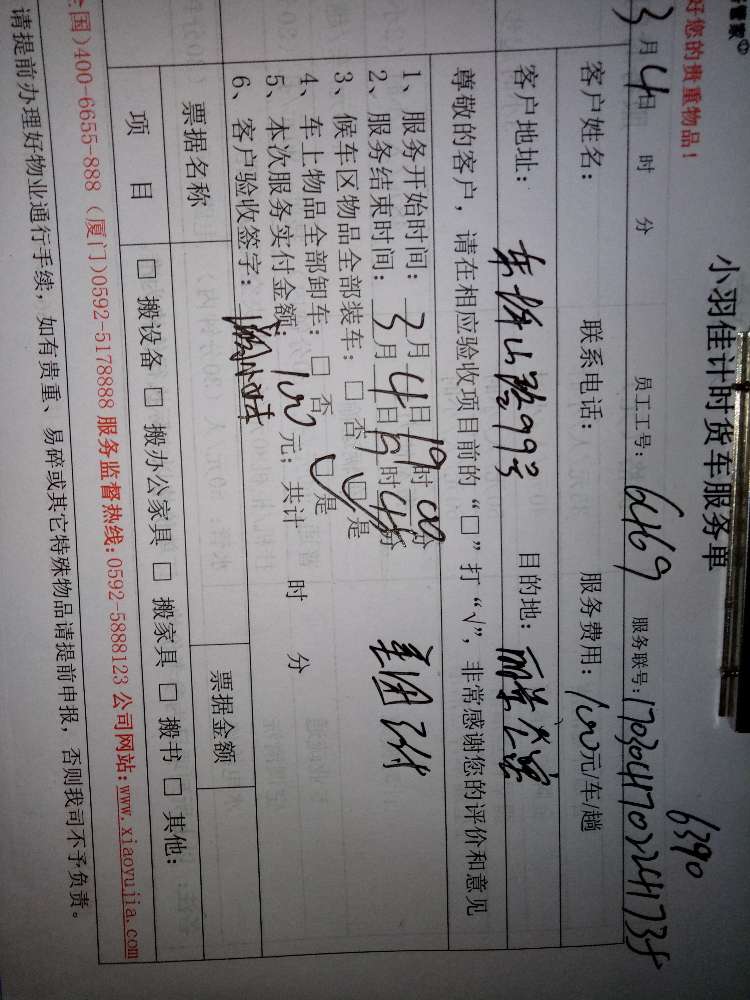 管家®
好您的贵重物品！
小羽佳计时货车服务单
6390
3月4日 时 分 员工工号：6469 服务联号：
客户姓名： 联系电话： 服务费用：100元/车/趟
客户地址： 东坪山路99号 目的地：
尊敬的客户，请在相应验收项目前的“□”打“√”，非常感谢您的评价和意见
1、服务开始时间：3月4日19时00分
2、服务结束时间：3月4日 时45分 美团
3、候车区物品全部装车：□ 否 □ 是
4、车上物品全部卸车：□ 否 □ 是
5、本次服务实付金额：100元；共计 时 分
6、客户验收签字：
票据名称 票据金额
项 目 □ 搬设备 □ 搬办公家具 □ 搬家具 □ 搬书 □ 其他：
全国)400-6655-888 (厦门)0592-5178888 服务监督热线:0592-5888123 公司网站:www.xiaoyujia.com
请提前办理好物业通行手续，如有贵重、易碎或其它特殊物品请提前申报，否则我司不予负责。